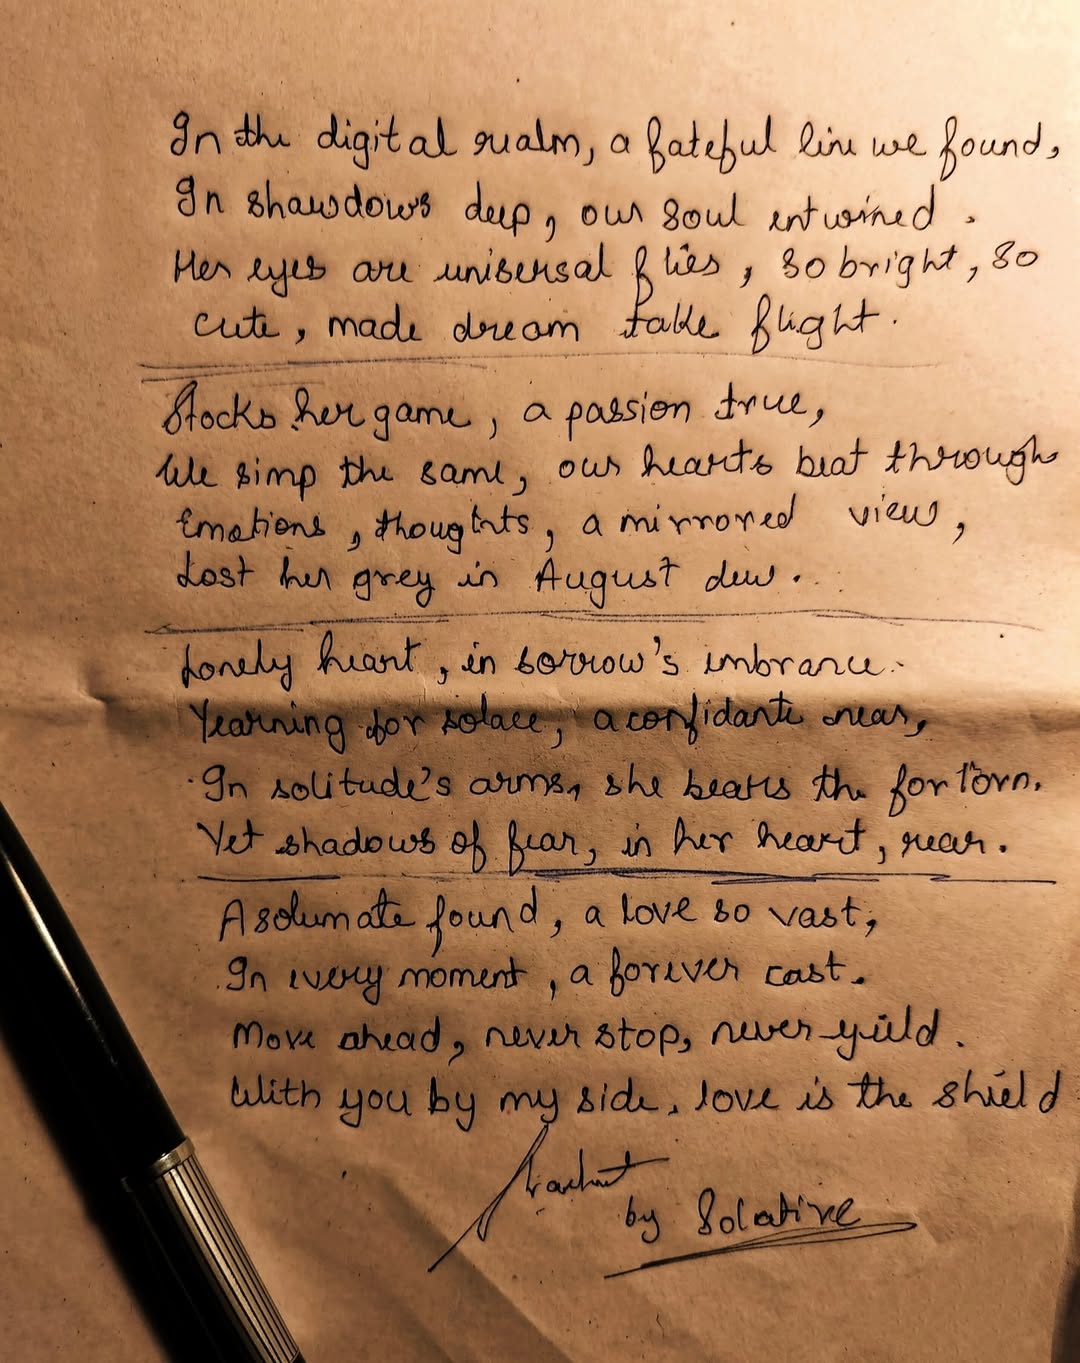 In the digital realm, a fateful line we found,
In shawdows deep, our soul entwined.
Her eyes are unisersal flies, so bright, so
cute, made dream take flight.
Stocks her game, a passion true,
We simp the same, our hearts beat through
Emotions, thoughts, a mirrored view,
Lost her grey in August dew.
Lonely heart, in sorrow's imbrance.
Yearning for solace, a confidante near,
In solitude's arms, she bears the forlorn.
Yet shadows of fear, in her heart, rear.
A solumate found, a love so vast,
In every moment, a forever cast.
Move ahead, never stop, never yield.
With you by my side, love is the shield
by Solative